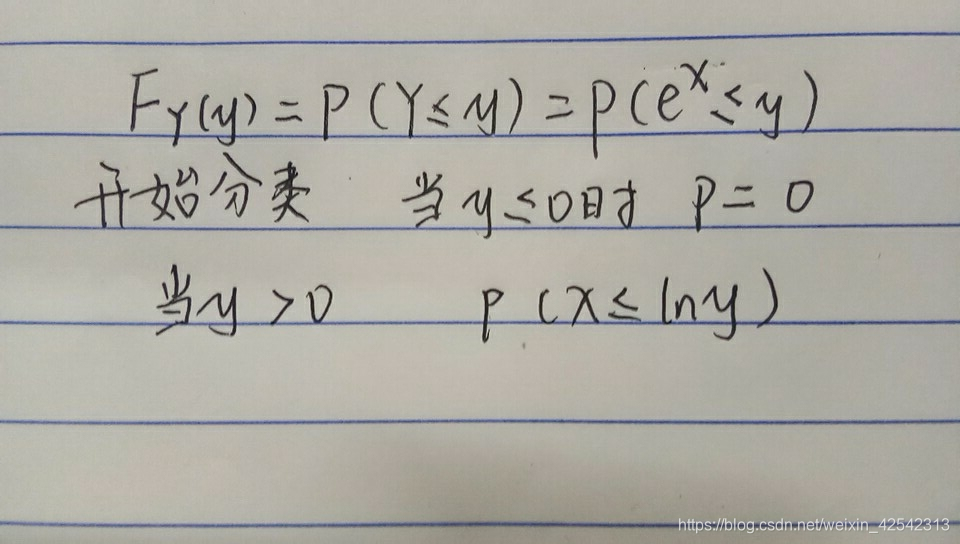 F_Y(y) = P(Y≤y) = P(e^X≤y)
开始分类 当y≤0时 P=0
当y>0 P(X≤lny)
https://blog.csdn.net/weixin_42542313